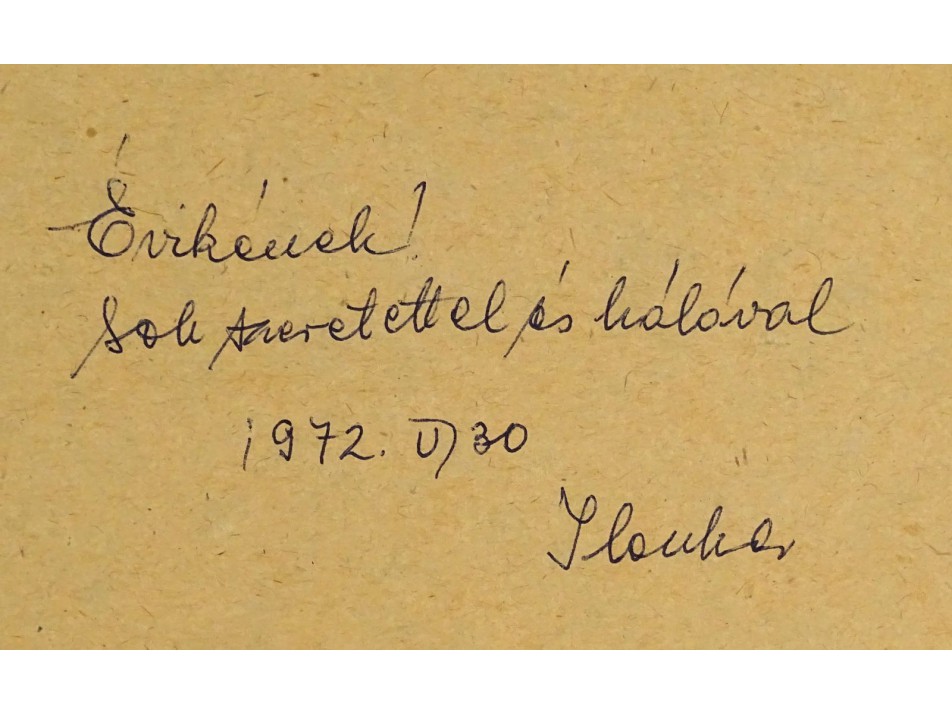 Évikének!
Sok szeretettel és hálával
1972. VI 30
Ilonka